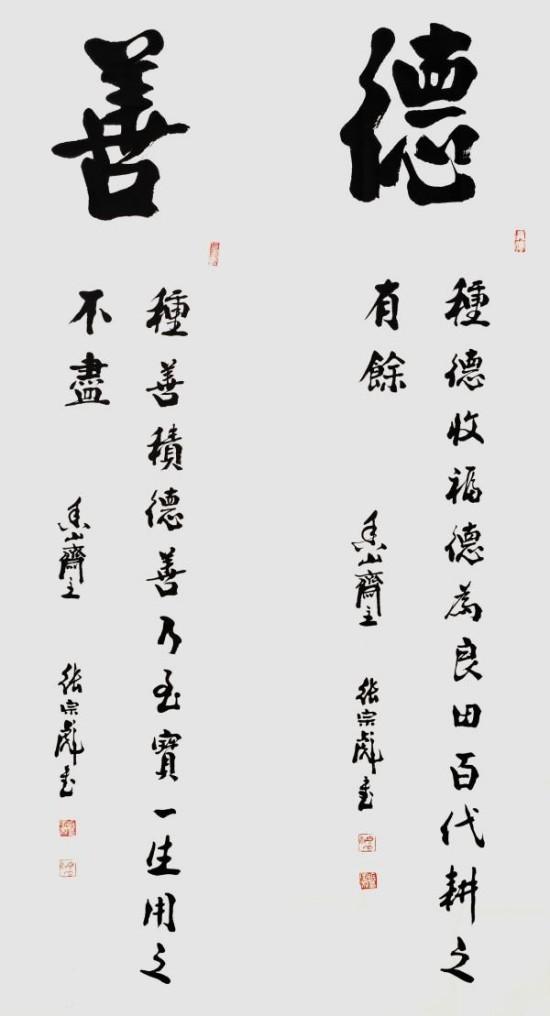 德
種德收福德為良田百代耕之
有餘
香山齋主 張宗彪書
善
種善積德善乃至寶一生用之
不盡
香山齋主 張宗彪書